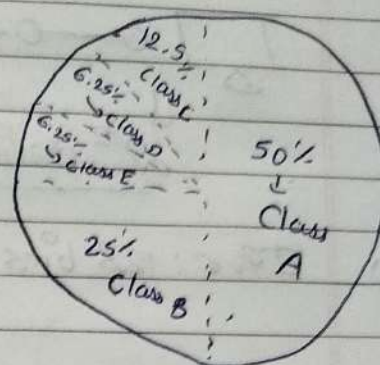 12.5%
Class C
6.25%
↳ Class D
6.25%
↳ Class E
50%
↓
Class
A
25%
Class B